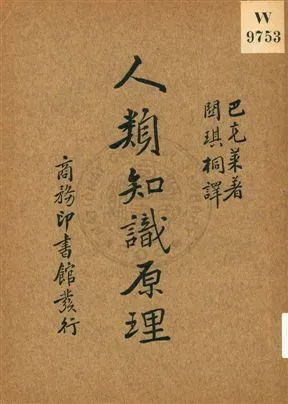 W
9753
巴克萊著
關琪桐譯
人類知識原理
商務印書館發行